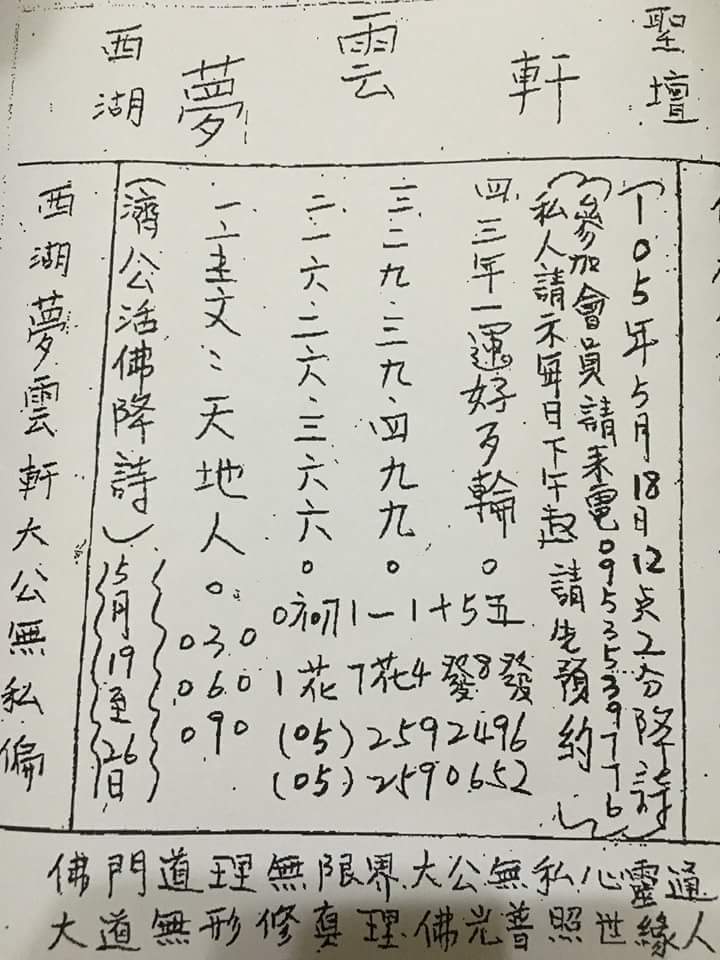 西湖 夢雲軒 聖壇
(105年5月18日12点2分降詩)
(參加會員請來電0953539776)
私人請示每日下午起 請先預約
四.三年一運好歹輪。
三.二九.三九.四九九。
二.一六.二六.三六六。
一.二主文:天地人。
(濟公活佛降詩)
5月19至26日
西湖夢雲軒大公無私偏
0初1一1十5五
1花7花4發8發
(05)2592496
(05)2590652
030
060
090
佛門道理無限界大公無私心靈通
大道無形修真理佛光普照世緣人